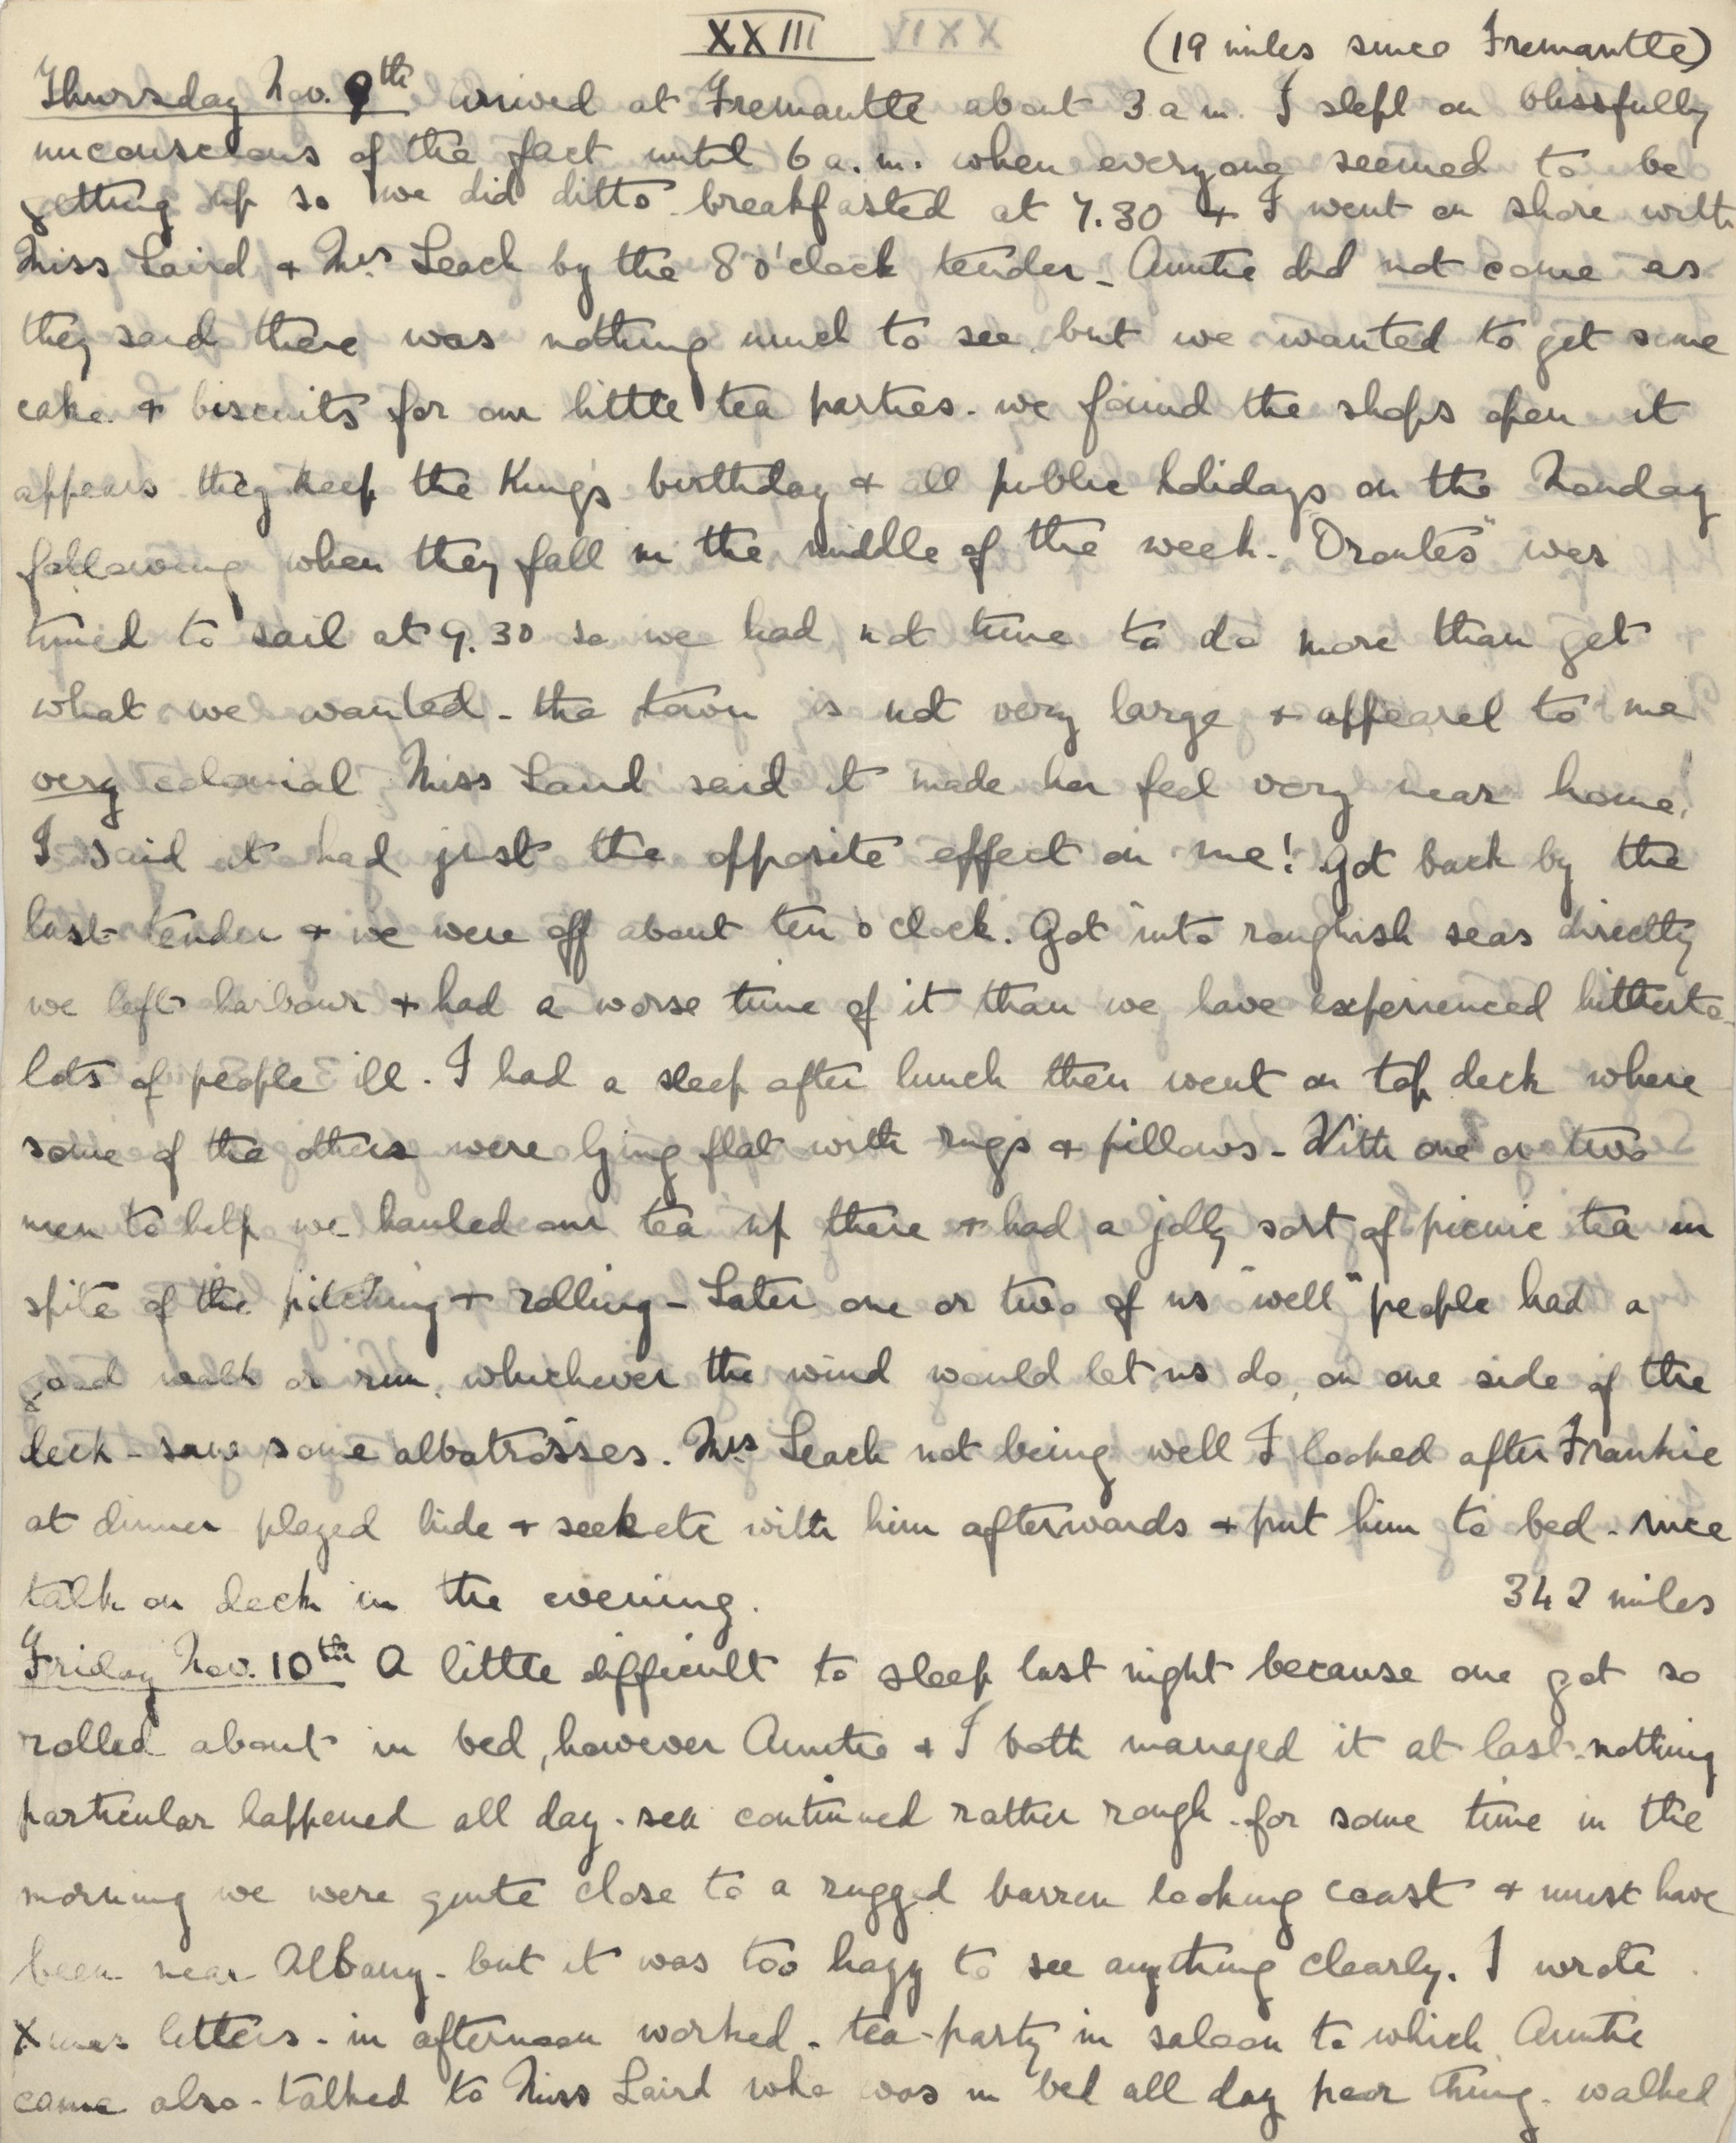 XXIII
(19 miles since Fremantle)
Thursday Nov. 9th arrived at Fremantle about 3 a m. I slept on blissfully
unconscious of the fact until 6 a.m. when everyone seemed to be
getting up so we did ditto. breakfasted at 7.30 + I went on shore with
Miss Laird + Mrs Leach by the 8 o'clock tender - Auntie did not come as
they said there was nothing much to see but we wanted to get some
cake + biscuits for our little tea parties. we found the shops open it
appears they keep the King's birthday + all public holidays on the Monday
following when they fall in the middle of the week. "Orontes" was
timed to sail at 9.30 so we had not time to do more than get
what we wanted - the town is not very large + appeared to me
very colonial Miss Laird said it made her feel very near home!
I said it had just the opposite effect on me! Got back by the
last tender + we were off about ten o'clock. Got into roughish seas directly
we left harbour + had a worse time of it than we have experienced hitherto -
lots of people ill. I had a sleep after lunch then went on top deck where
some of the others were lying flat with rugs + pillows - With one or two
men to help we hauled our tea up there + had a jolly sort of picnic tea in
spite of the pitching + rolling - Later one or two of us "well" people had a
good walk or run, whichever the wind would let us do, on one side of the
deck - saw some albatrosses. Mrs Leach not being well I looked after Frankie
at dinner played hide + seek etc with him afterwards + put him to bed. nice
talk on deck in the evening.
342 miles
Friday Nov. 10th A little difficult to sleep last night because one got so
rolled about in bed, however Auntie + I both managed it at last. nothing
particular happened all day. sea continued rather rough. for some time in the
morning we were quite close to a rugged barren looking coast + must have
been near Albany. but it was too hazy to see anything clearly. I wrote
Xmas letters. in afternoon worked. tea-party in saloon to which Auntie
came also - talked to Miss Laird who was in bed all day poor thing. walked